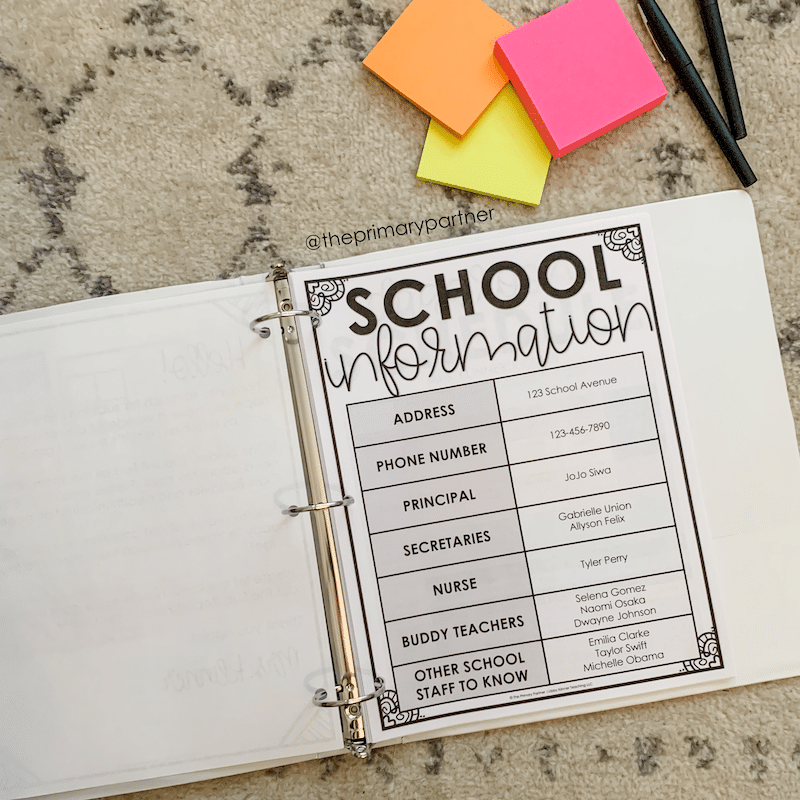 @theprimarypartner
SCHOOL
information
ADDRESS
123 School Avenue
PHONE NUMBER
123-456-7890
PRINCIPAL
JoJo Siwa
SECRETARIES
Gabrielle Union
Allyson Felix
NURSE
Tyler Perry
BUDDY TEACHERS
Selena Gomez
Naomi Osaka
Dwayne Johnson
OTHER SCHOOL
STAFF TO KNOW
Emilia Clarke
Taylor Swift
Michelle Obama